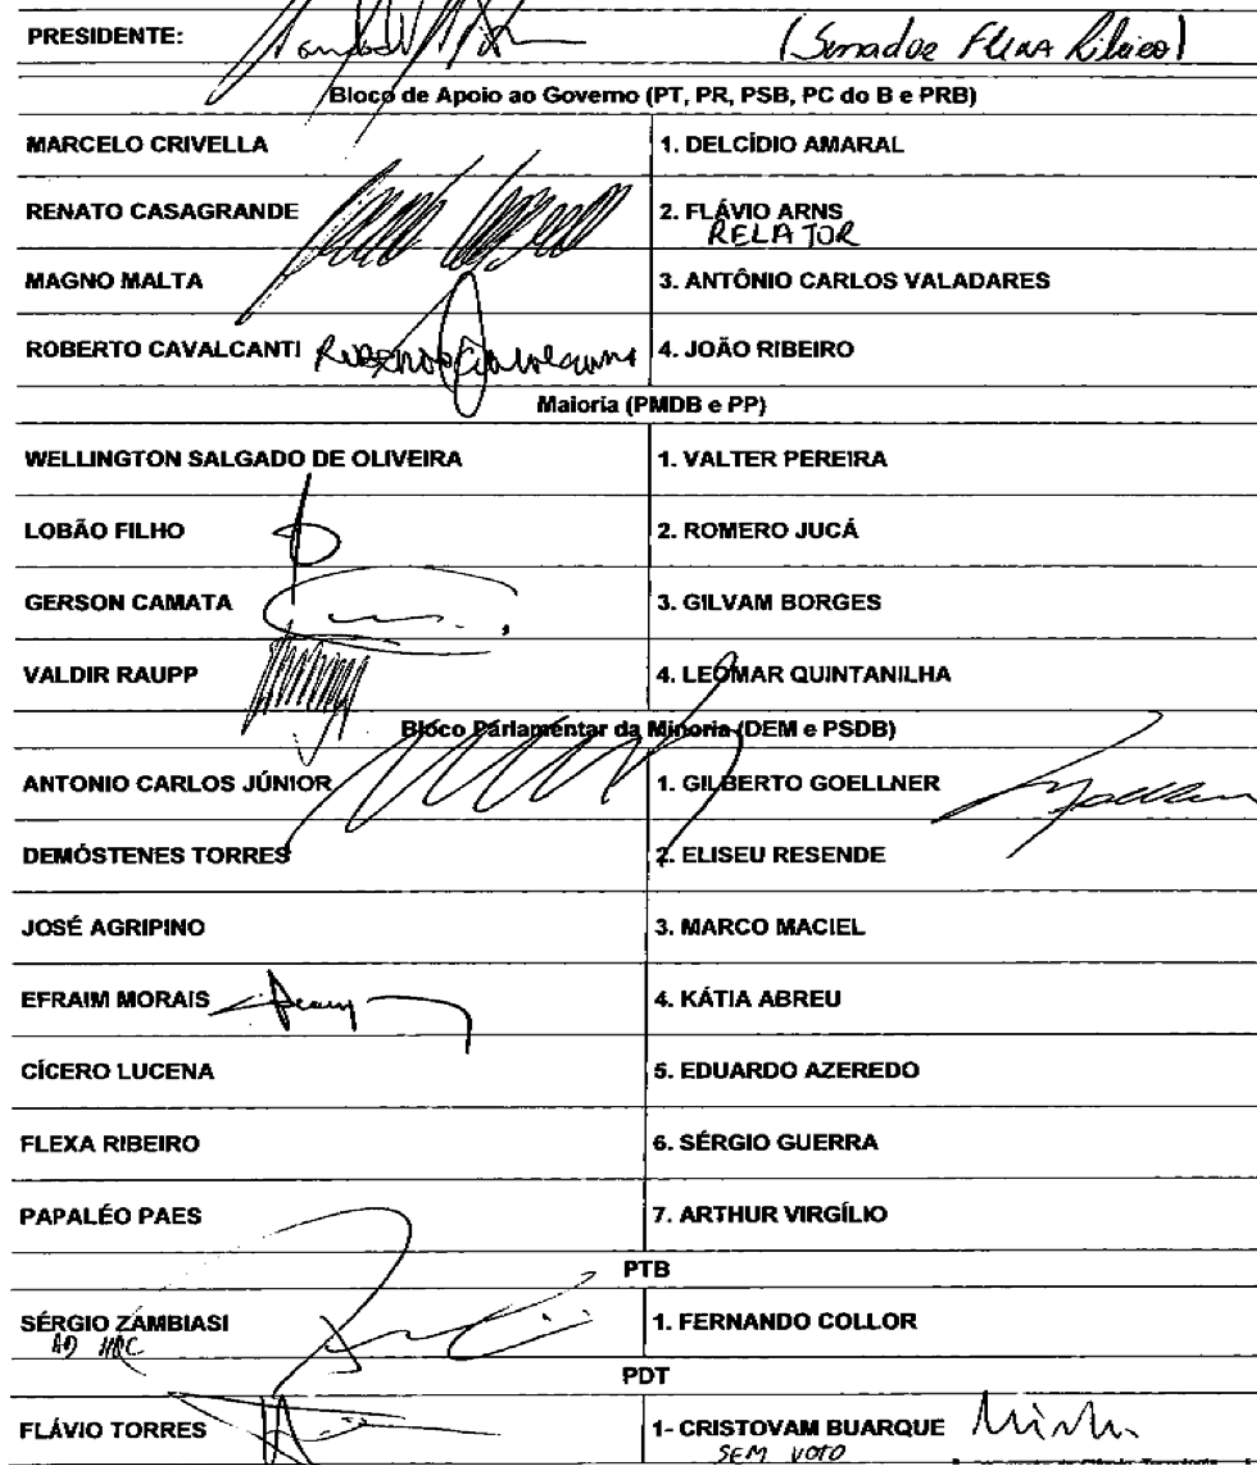 PRESIDENTE: (Senador Flexa Ribeiro)
Bloco de Apoio ao Governo (PT, PR, PSB, PC do B e PRB)
MARCELO CRIVELLA 1. DELCÍDIO AMARAL
RENATO CASAGRANDE 2. FLÁVIO ARNS
RELATOR
MAGNO MALTA 3. ANTÔNIO CARLOS VALADARES
ROBERTO CAVALCANTI Roberto Cavalcanti 4. JOÃO RIBEIRO
Maioria (PMDB e PP)
WELLINGTON SALGADO DE OLIVEIRA 1. VALTER PEREIRA
LOBÃO FILHO 2. ROMERO JUCÁ
GERSON CAMATA 3. GILVAM BORGES
VALDIR RAUPP 4. LEOMAR QUINTANILHA
Bloco Parlamentar da Minoria (DEM e PSDB)
ANTONIO CARLOS JÚNIOR 1. GILBERTO GOELLNER
DEMÓSTENES TORRES 2. ELISEU RESENDE
JOSÉ AGRIPINO 3. MARCO MACIEL
EFRAIM MORAIS 4. KÁTIA ABREU
CÍCERO LUCENA 5. EDUARDO AZEREDO
FLEXA RIBEIRO 6. SÉRGIO GUERRA
PAPALÉO PAES 7. ARTHUR VIRGÍLIO
PTB
SÉRGIO ZAMBIASI 1. FERNANDO COLLOR
AD HOC
PDT
FLÁVIO TORRES 1- CRISTOVAM BUARQUE
SEM VOTO